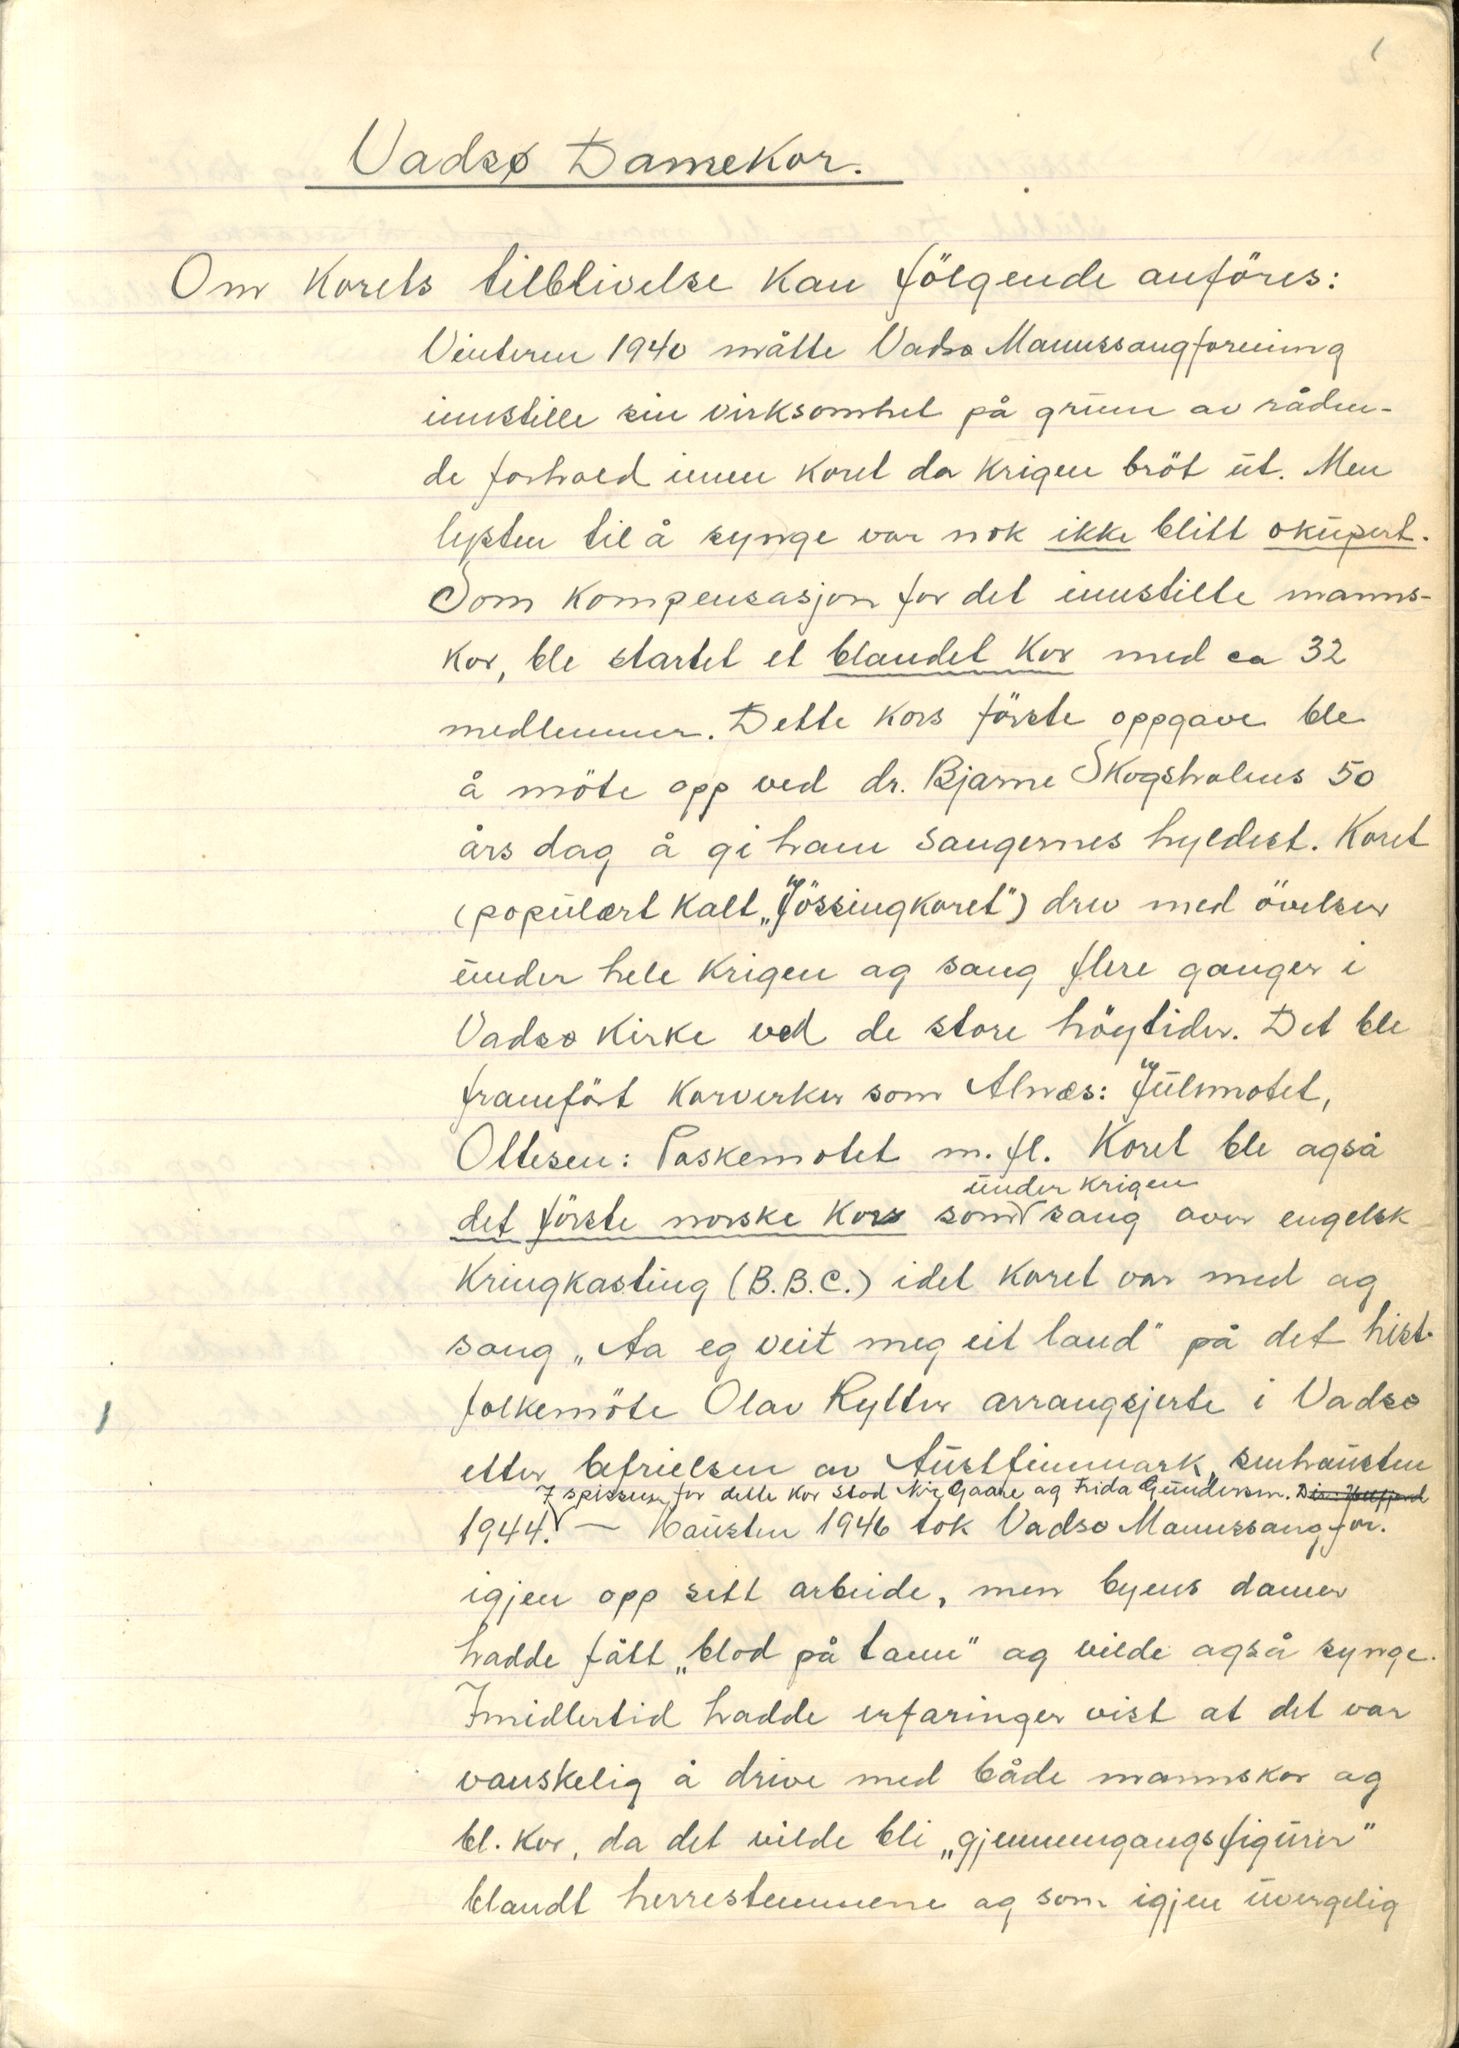 1
Vadsø Damekor.
Om Korets tilblivelse kan følgende anføres:
Vinteren 1940 måtte Vadsø Mannssangforening
innstille sin virksomhet på grunn av råden-
de forhold innen koret da krigen bröt ut. Men
lysten til å synge var nok ikke blitt okupert.
Som kompensasjon for det innstilte manns-
kor, ble startet et blandet kor med ca 32
medlemmer. Dette kors förste oppgave ble
å möte opp ved dr. Bjarne Skogsholms 50
års dag å gi ham sangernes hyldest. Koret
(populært kalt „Jössingkoret") drev med övelser
under hele krigen og sang flere ganger i
Vadsø Kirke ved de store höytider. Det ble
framfört korverker som Alnæs: Julemotet,
Ottesen: Paskemotet m. fl. Koret ble også
under krigen
det förste norske kors som sang over engelsk
Kringkasting (B.B.C.) idet koret var med og
sang „Aa eg veit meg eit land" på det hist.
folkemöte Olav Rytter arrangsjerte i Vadsø
1
etter befrielsen av Austfinnmark, senhausten
I spissen for dette kor stod Gaare og Frida Gundersen. Dir.
1944. — Hausten 1946 tok Vadsø Mannssangfor.
igjen opp sitt arbeide, men byens damer
hadde fått „blod på tann" og vilde også synge.
Imidlertid hadde erfaringer vist at det var
vanskelig å drive med både mannskor og
bl. kor, da det vilde bli „gjennemgangsfigurer"
blandt herrestemmene og som igjen uvergelig